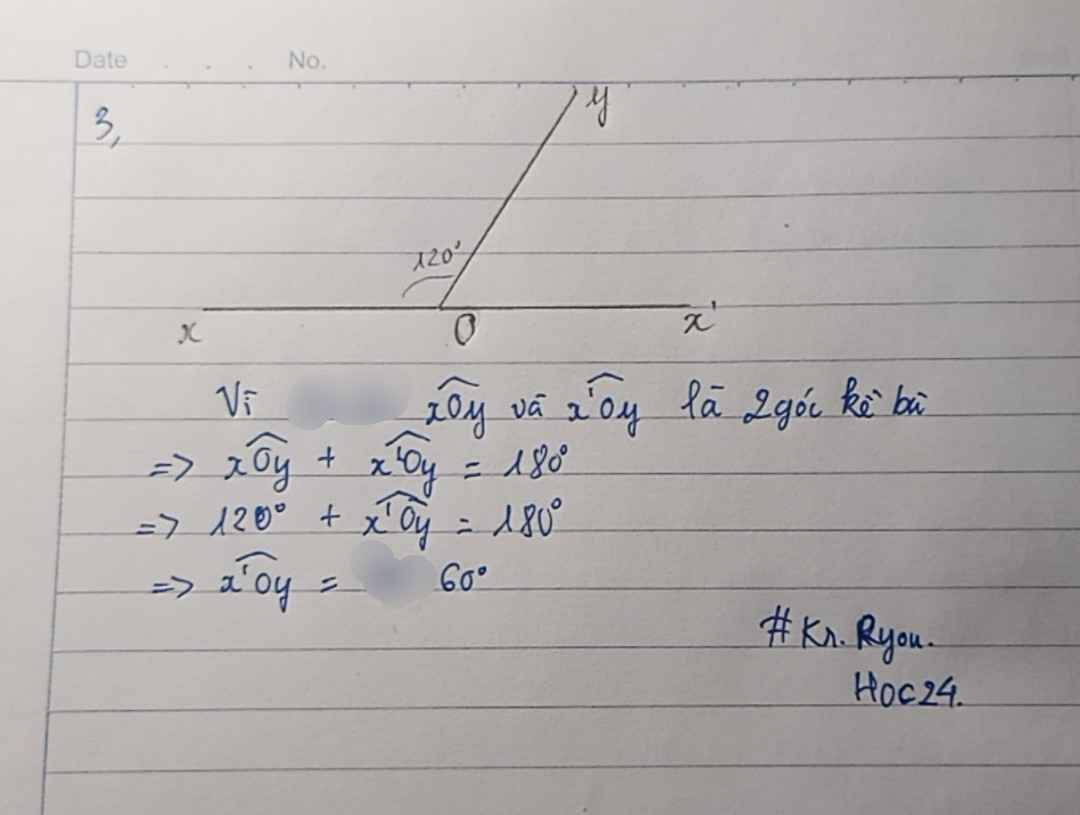 Date . . . No.
3,
y
120°
x O x'
Vì xOy và x'Oy là 2 góc kề bù
=> xOy + x'Oy = 180°
=> 120° + x'Oy = 180°
=> x'Oy = 60°
#Kr. Ryou.
Hoc24.